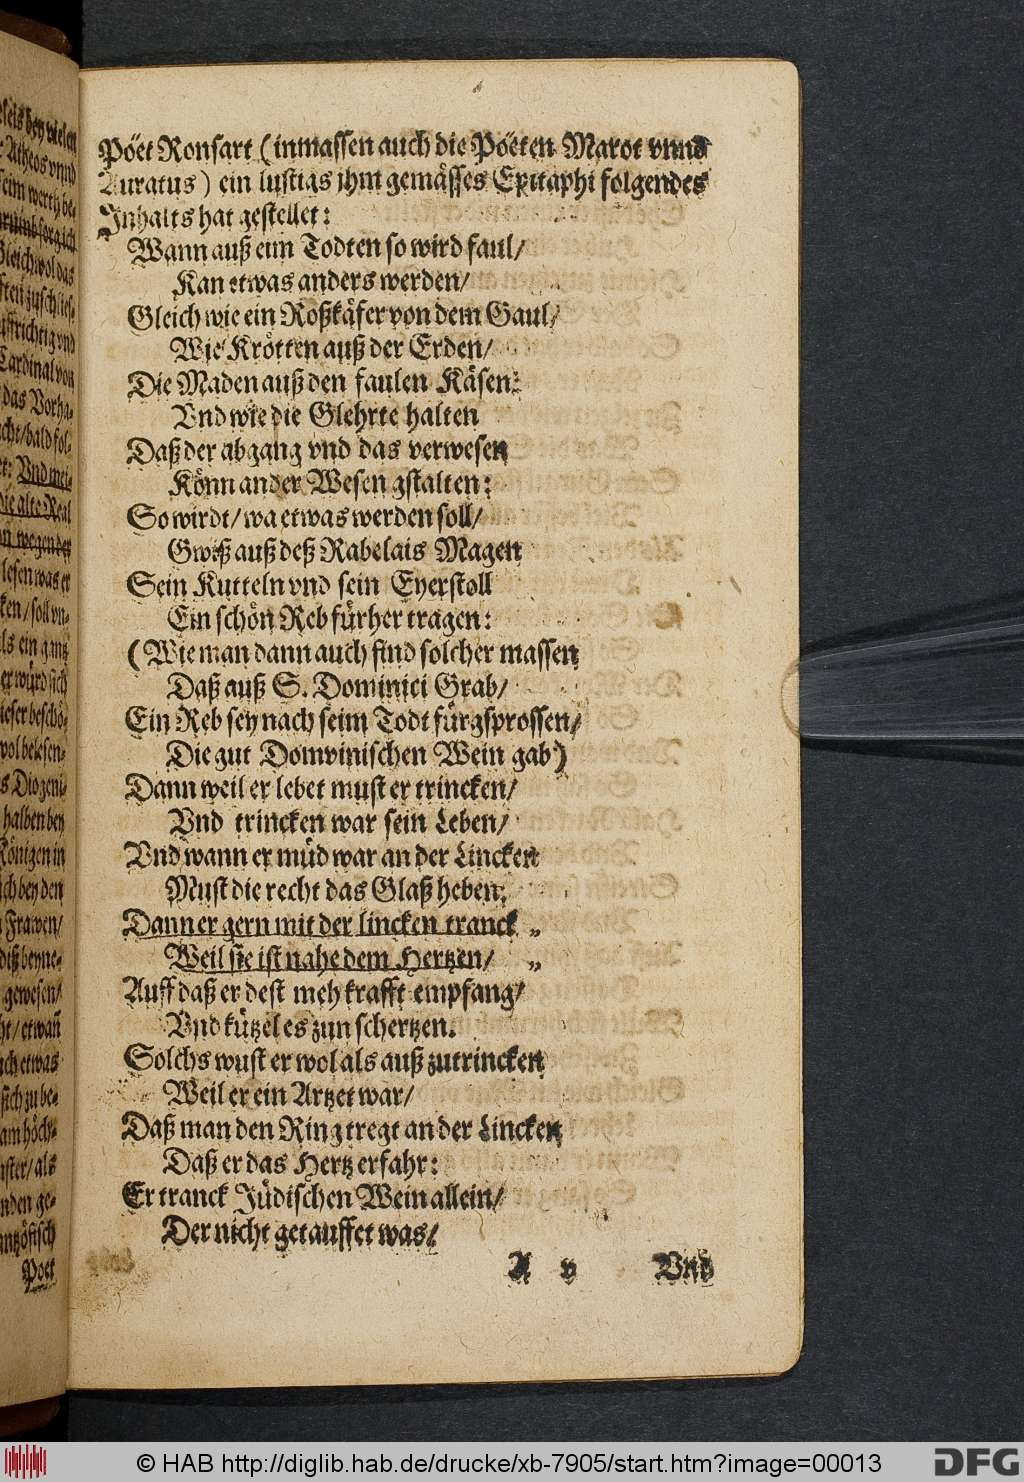 Pöet Ronsart (inmassen auch die Pöeten Marot vnnd
Auratus) ein lustigs ihm gemässes Epitaphi folgendes
Inhalts hat gestellet:
Wann auß eim Todten so wird faul/
Kan etwas anders werden/
Gleich wie ein Roßkäfer von dem Gaul/
Wie Krötten auß der Erden/
Die Maden auß den faulen Käsen:
Vnd wie die Glehrte halten
Daß der abgang vnd das verwesen
Könn ander Wesen gstalten:
So wirdt/ wa etwas werden soll/
Gwiß auß deß Rabelais Magen
Sein Kutteln vnd sein Eyerstoll
Ein schön Reb fürher tragen:
(Wie man dann auch find solcher massen
Daß auß S. Dominici Grab/
Ein Reb sey nach seim Todt fürgsprossen/
Die gut Domvinischen Wein gab)
Dann weil er lebet must er trincken/
Vnd trincken war sein Leben/
Vnd wann er müd war an der Lincken
Must die recht das Glaß heben:
Dann er gern mit der lincken tranck „
Weil sie ist nahe dem Hertzen/ „
Auff daß er dest meh krafft empfang/
Vnd kützel es zun schertzen.
Solchs wust er wol als auß zutrincken
Weil er ein Artzet war/
Daß man den Ring tregt an der Lincken
Daß er das Hertz erfahr:
Er tranck Jüdischen Wein allein/
Der nicht getauffet was/
A v Vnd
© HAB http://diglib.hab.de/drucke/xb-7905/start.htm?image=00013
DFG